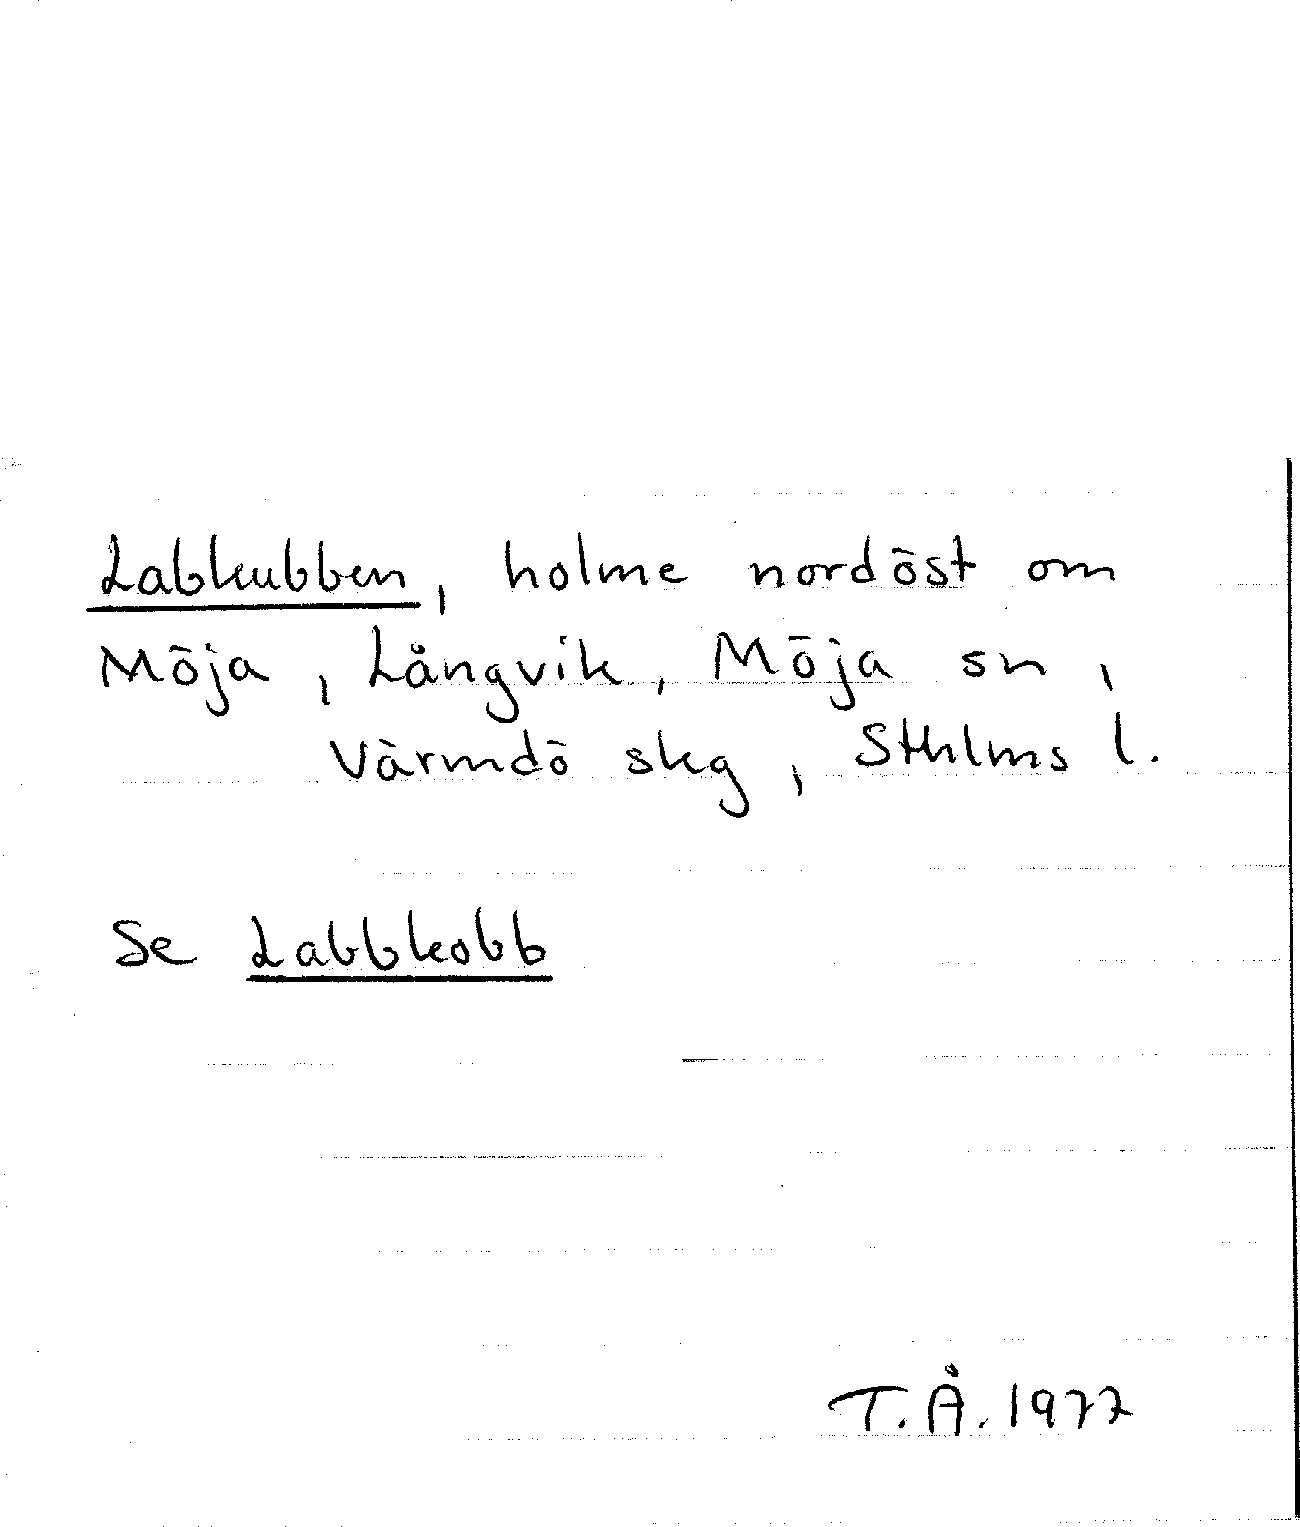 Labkubben, holme nordöst om
Möja, Långvik, Möja sn,
Värmdö skg, Sthlms l.
Se Labbkobb
T.Å. 1977